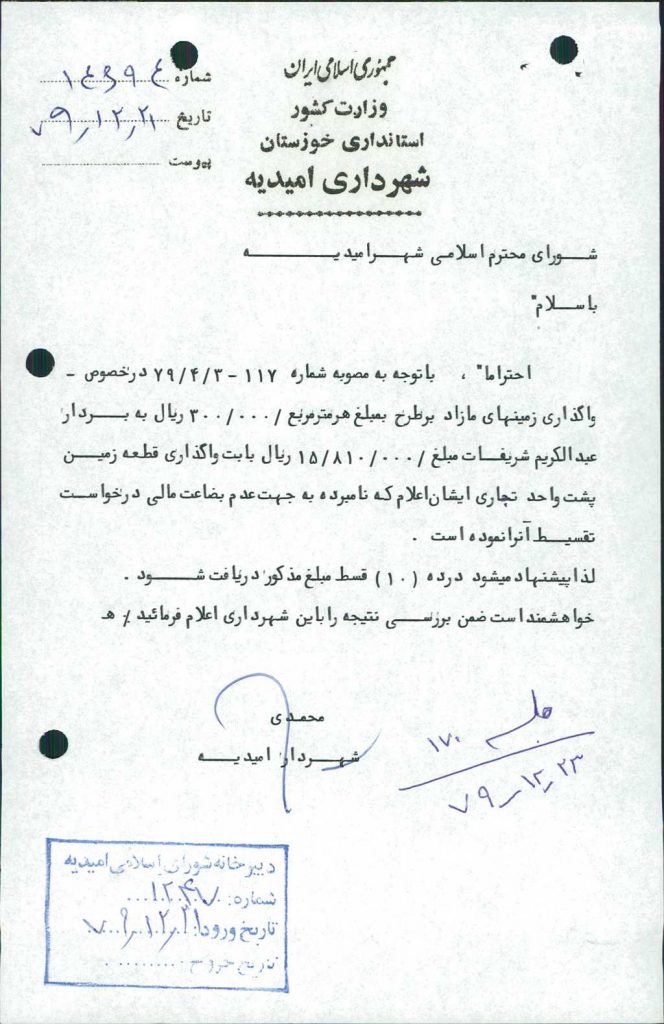 جمهوری اسلامی ایران
وزارت کشور
استانداری خوزستان
شهرداری امیدیه
شماره ۱۴۳۹۴
تاریخ ۷۹/۱۲/۲۱
پیوست
شورای محترم اسلامی شهر امیدیه
با سلام"
احتراما" ، با توجه به مصوبه شماره ۱۱۷ - ۷۹/۴/۳ درخصوص -
واگذاری زمینهای مازاد برطرح بمبلغ هرمترمربع /۳۰۰/۰۰۰ ریال به بردار
عبدالکریم شریفات مبلغ /۱۵/۸۱۰/۰۰۰ ریال بابت واگذاری قطعه زمین
پشت واحد تجاری ایشان اعلام که نامبرده به جهت عدم بضاعت مالی درخواست
تقسیط آنرا نموده است .
لذا پیشنهاد میشود درده (۱۰) قسط مبلغ مذکور دریافت شود .
خواهشمند است ضمن بررسی نتیجه را باین شهرداری اعلام فرمائید / هـ
محمدی
شهردار امیدیه
جلسه ۱۷۰
۷۹/۱۲/۲۳
دبیرخانه شورای اسلامی امیدیه
شماره:
تاریخ ورود: ۷۹/۱۲/۲۱
تاریخ خروج: